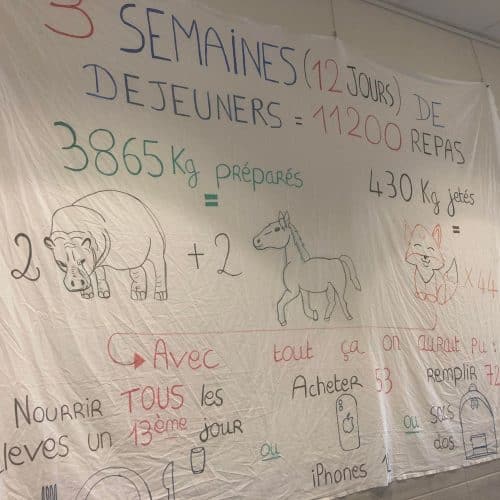 3 SEMAINES (12 JOURS) DE
DEJEUNERS = 11200 REPAS
3865 Kg préparés
=
430 Kg jetés
=
2 + 2
x 44
Avec tout ça on aurait pu :
NOURRIR TOUS les
eleves un 13ème jour
ou
Acheter 53
iPhones
ou
remplir 72
sacs
dos